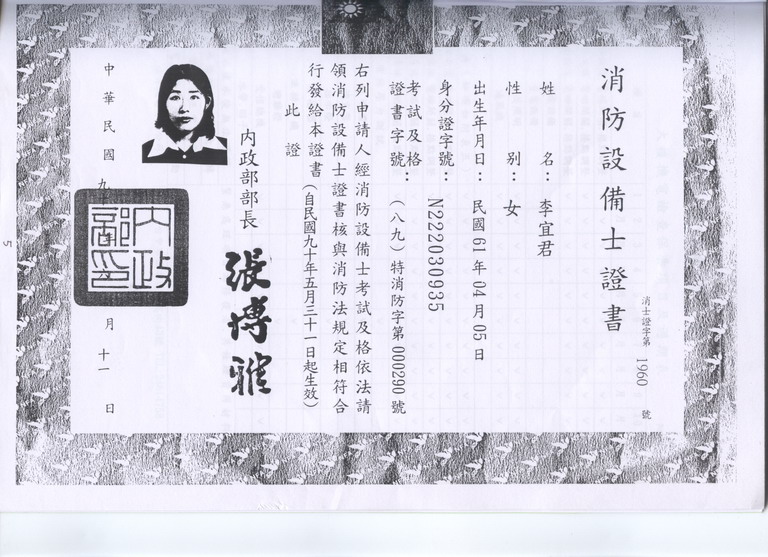 消防設備士證書
消士證字第 1960 號
姓名：李宜君
性別：女
出生年月日：民國 61 年 04 月 05 日
身分證字號：N222030935
考試及格
證書字號：（八九）特消防字第 000290 號
右列申請人經消防設備士考試及格依法請
領消防設備士證書核與消防法規定相符合
行發給本證書（自民國九十年五月三十一日起生效）
此證
內政部部長 張博雅
內政部印
中華民國九 月十一日
5